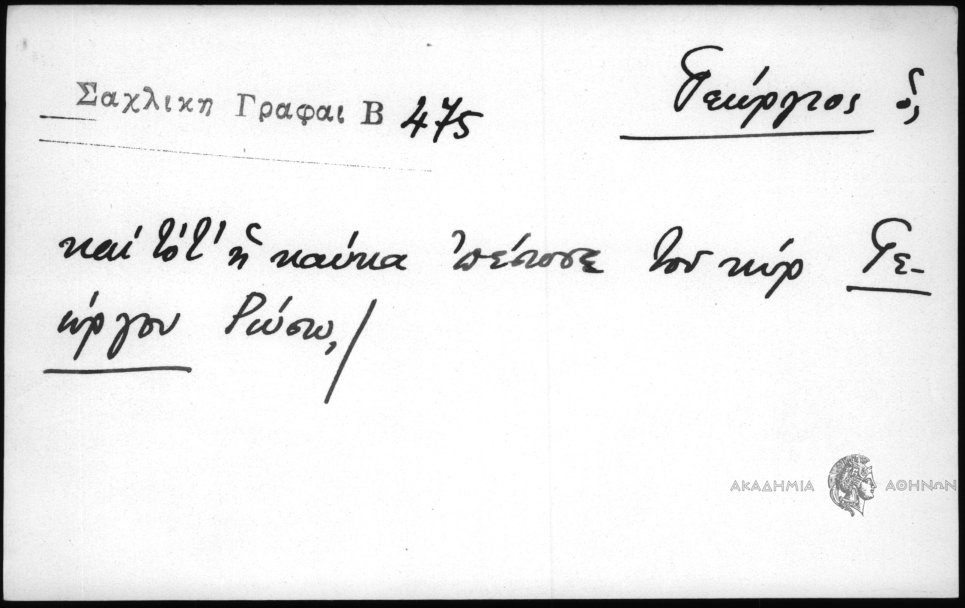 Σαχλικη Γραφαι Β 475
Γεώργιος ὁ,
καί τότ' ἡ καύκα ἐπέσωσε τοῦ κύρ Γε-
ώργου Ρώσω,/
ΑΚΑΔΗΜΙΑ ΑΘΗΝΩΝ